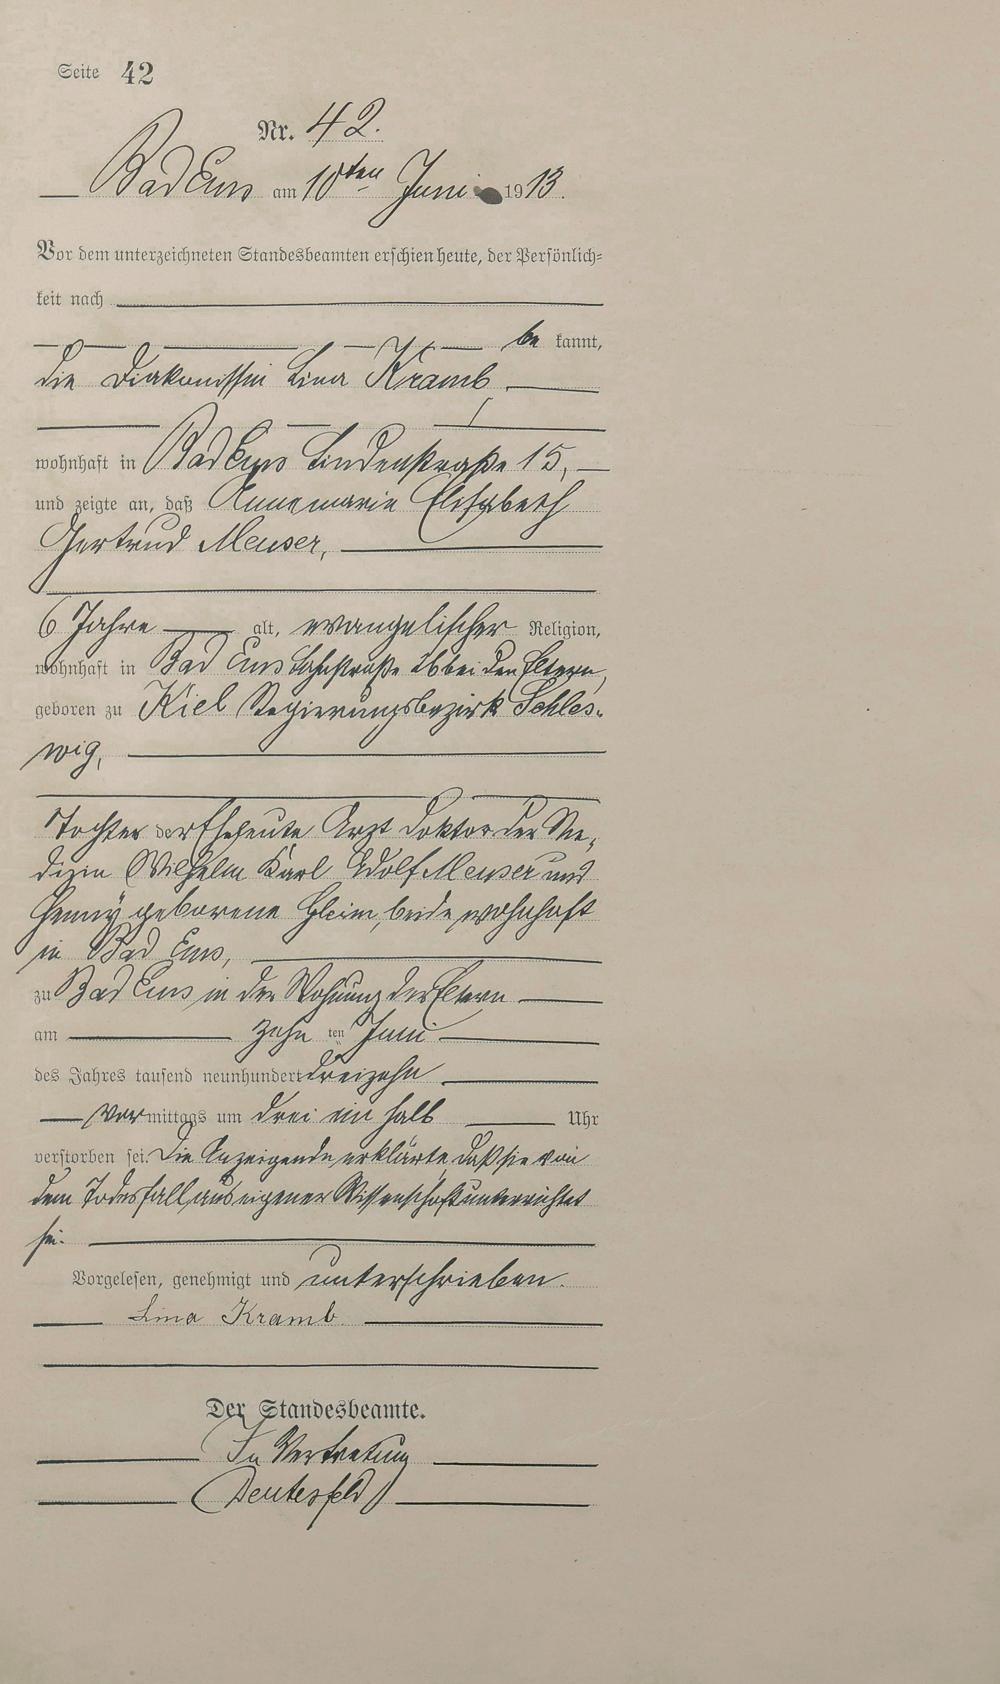 Seite 42
Nr. 42.
Bad Ems am 10ten Juni 1913.
Vor dem unterzeichneten Standesbeamten erschien heute, der Persönlich-
keit nach
be kannt,
die Diakonissin Lina Kramb,
wohnhaft in Bad Ems Lindenstraße 15,
und zeigte an, daß Annemarie Elisabeth
Gertrud Meuser,
6 Jahre alt, evangelischer Religion,
wohnhaft in Bad Ems Lahnstraße 26 bei den Eltern,
geboren zu Kiel Regierungsbezirk Schles-
wig,
Tochter der Eheleute Arzt Doktor der Me-
dizin Wilhelm Karl Adolf Meuser und
Henny geborene Gleim, beide wohnhaft
in Bad Ems,
zu Bad Ems in der Wohnung der Eltern
am zehn ten Juni
des Jahres tausend neunhundert dreizehn
Vormittags um drei ein halb Uhr
verstorben sei. Die Anzeigende erklärte, daß sie von
dem Todesfall aus eigener Wissenschaft unterrichtet
sei.
Vorgelesen, genehmigt und unterschrieben.
Lina Kramb
Der Standesbeamte.
In Vertretung
Deutesfeld